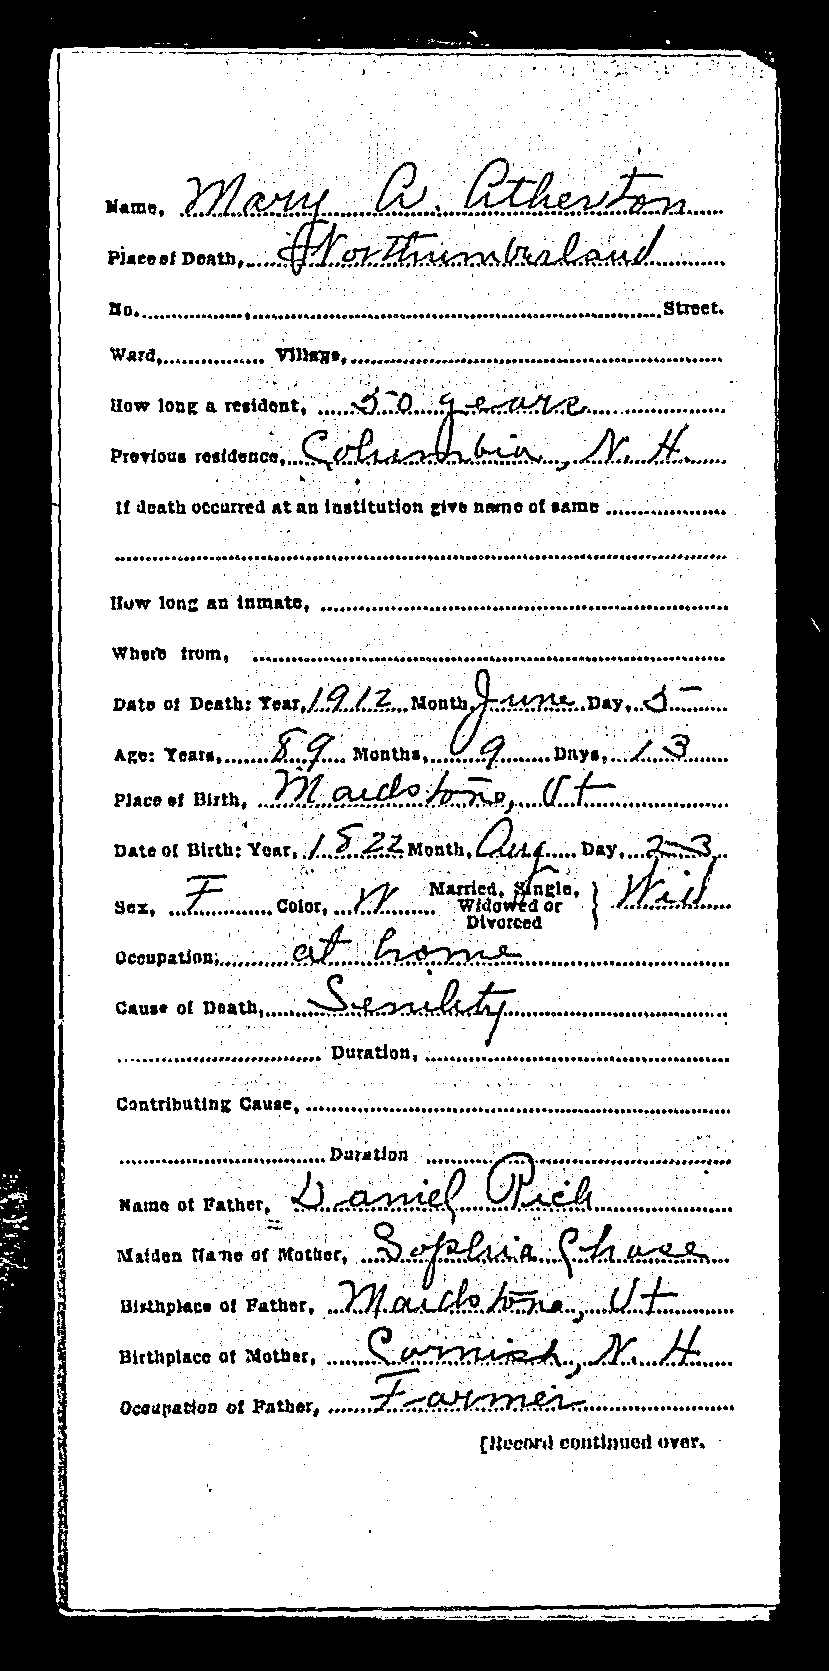 Name, Mary A. Atherton
Place of Death, Northumberland
No. Street.
Ward, Village,
How long a resident, 50 years
Previous residence, Columbia, N. H.
If death occurred at an institution give name of same
How long an inmate,
Where from,
Date of Death: Year, 1912 Month, June Day, 5
Age: Years, 89 Months, 9 Days, 13
Place of Birth, Maidstone, Vt
Date of Birth: Year, 1822 Month, Aug Day, 23
Sex, F Color, W Married, Single, Widowed or Divorced } Wid
Occupation, at home
Cause of Death, Senility
Duration,
Contributing Cause,
Duration
Name of Father, Daniel Rich
Maiden Name of Mother, Sophia Chase
Birthplace of Father, Maidstone, Vt
Birthplace of Mother, Cornish, N. H
Occupation of Father, Farmer
[Record continued over.